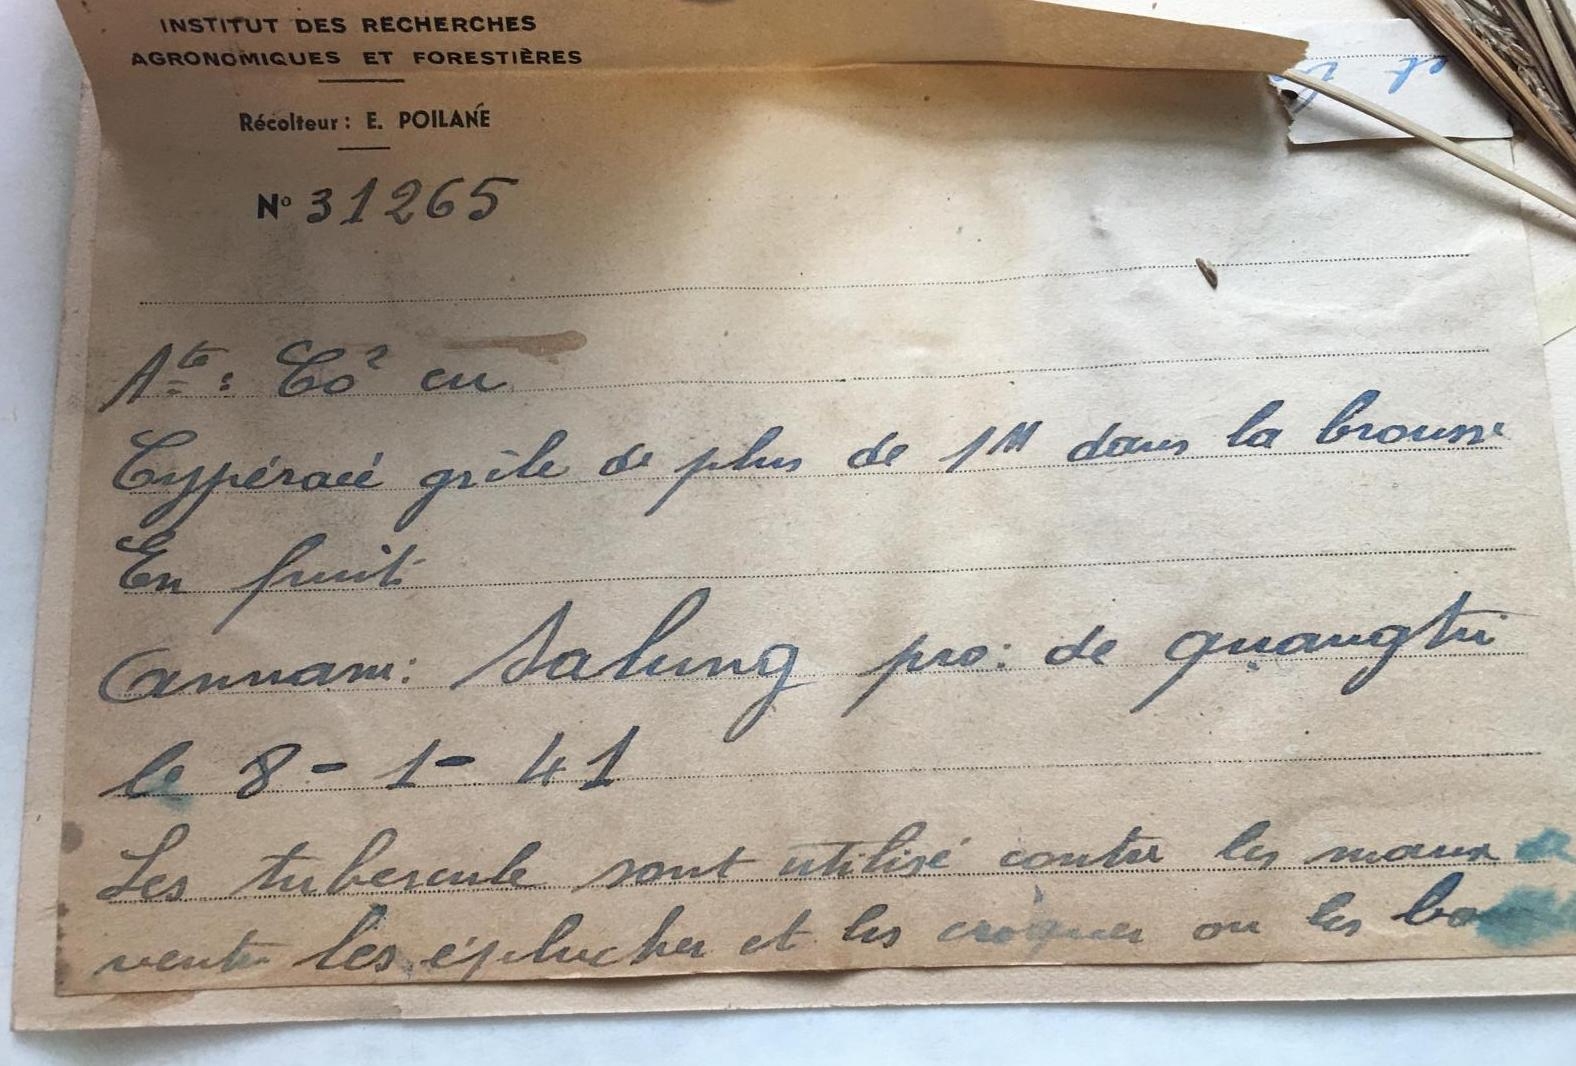 INSTITUT DES RECHERCHES
AGRONOMIQUES ET FORESTIÈRES
Récolteur : E. POILANÉ
Nº 31265
Ate : Co² cu
Cypéracé grêle de plus de 1M dans la brousse
En fruit
Annam : Salung pro : de quangtri
le 8 - 1 - 41
Les tubercule sont utilisé contre les maux de
ventre les éplucher et les croquer ou les
et